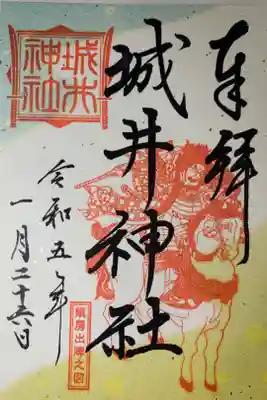 奉拝
城井神社
城井神社
令和五年
一月二十六日
鎮房出陣之図